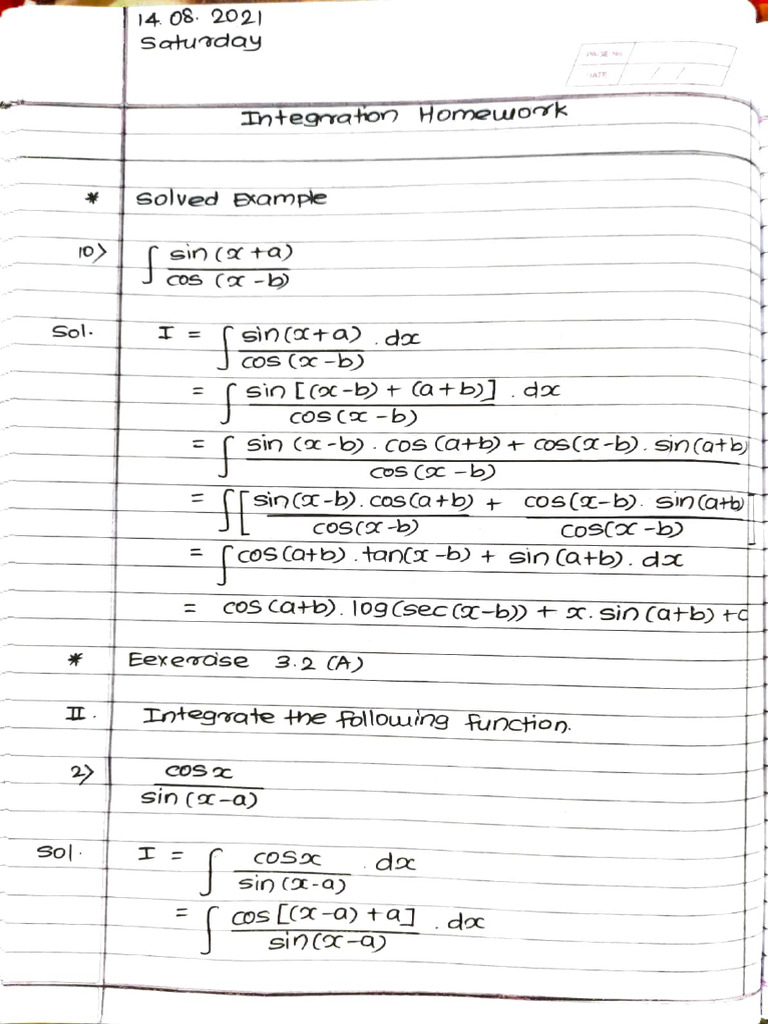 14.08.2021
Saturday
PAGE No.
DATE / /
Integration Homework
* Solved Example
10) ∫ sin(x+a) / cos(x-b)
Sol. I = ∫ sin(x+a) / cos(x-b) . dx
= ∫ sin[(x-b) + (a+b)] / cos(x-b) . dx
= ∫ sin(x-b).cos(a+b) + cos(x-b).sin(a+b) / cos(x-b)
= ∫ [ sin(x-b).cos(a+b) / cos(x-b) + cos(x-b).sin(a+b) / cos(x-b) ]
= ∫ cos(a+b).tan(x-b) + sin(a+b).dx
= cos(a+b).log(sec(x-b)) + x.sin(a+b) + c
* Eexercise 3.2 (A)
II. Integrate the following function.
2) cosx / sin(x-a)
Sol. I = ∫ cosx / sin(x-a) . dx
= ∫ cos[(x-a) + a] / sin(x-a) . dx